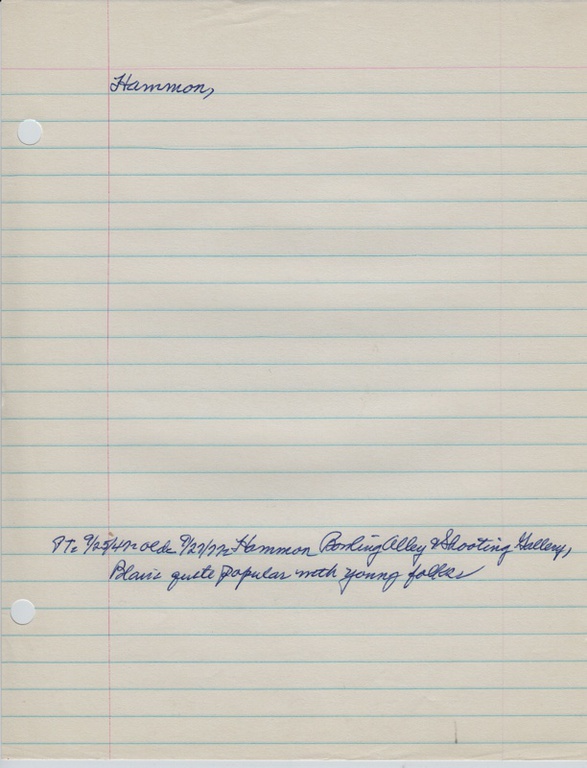 Hammon,
PT= 9/25/47= old= 9/27/77= Hammon Bowling Alley & Shooting Gallery,
Blair is quite popular with young folks